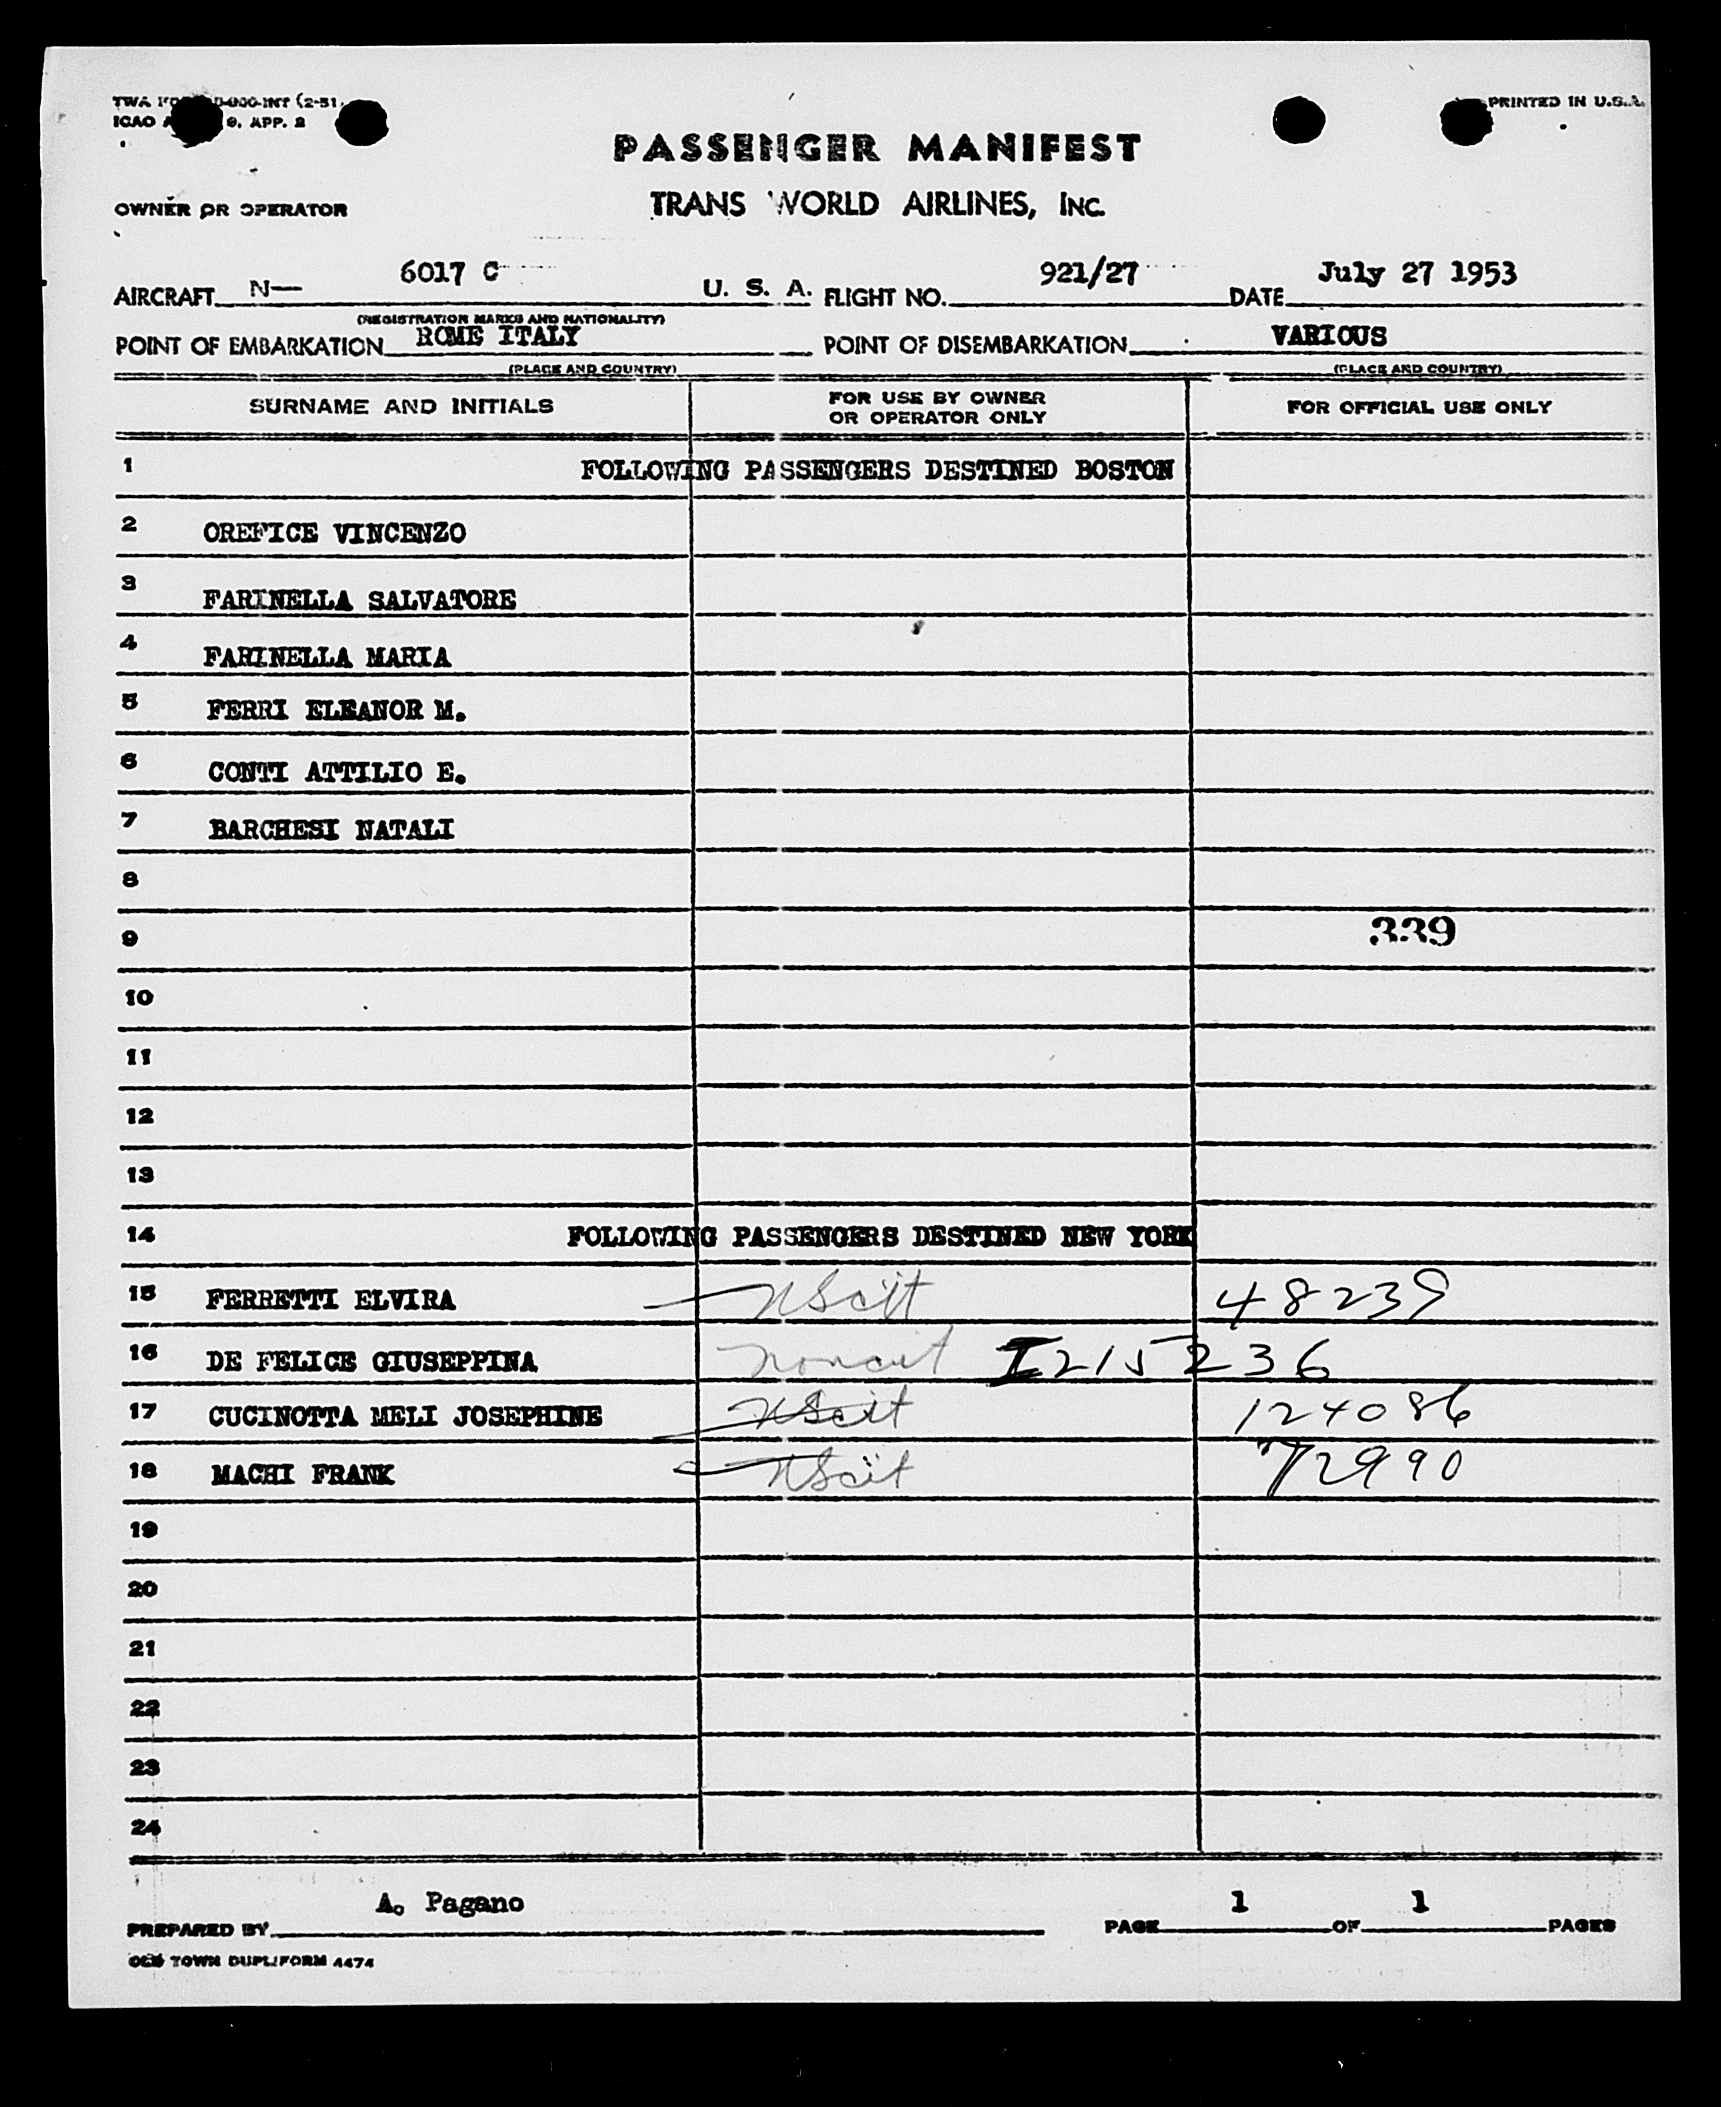 PRINTED IN U.S.A.
ICAO 9, APP. 2
PASSENGER MANIFEST
OWNER OR OPERATOR
TRANS WORLD AIRLINES, INC.
AIRCRAFT N— 6017 C U. S. A. FLIGHT NO. 921/27 DATE July 27 1953
(REGISTRATION MARKS AND NATIONALITY)
POINT OF EMBARKATION ROME ITALY POINT OF DISEMBARKATION VARIOUS
(PLACE AND COUNTRY) (PLACE AND COUNTRY)
SURNAME AND INITIALS FOR USE BY OWNER OR OPERATOR ONLY FOR OFFICIAL USE ONLY
1 FOLLOWING PASSENGERS DESTINED BOSTON
2 OREFICE VINCENZO
3 FARINELLA SALVATORE
4 FARINELLA MARIA
5 FERRI ELEANOR M.
6 CONTI ATTILIO E.
7 BARCHESI NATALI
8
9 339
10
11
12
13
14 FOLLOWING PASSENGERS DESTINED NEW YORK
15 FERRETTI ELVIRA USCit 48239
16 DE FELICE GIUSEPPINA noncit I215236
17 CUCINOTTA MELI JOSEPHINE USCit 124086
18 MACHI FRANK USCit 72990
19
20
21
22
23
24
A. Pagano 1 1
PREPARED BY PAGE OF PAGES
OLD TOWN DUPLIFORM 4474